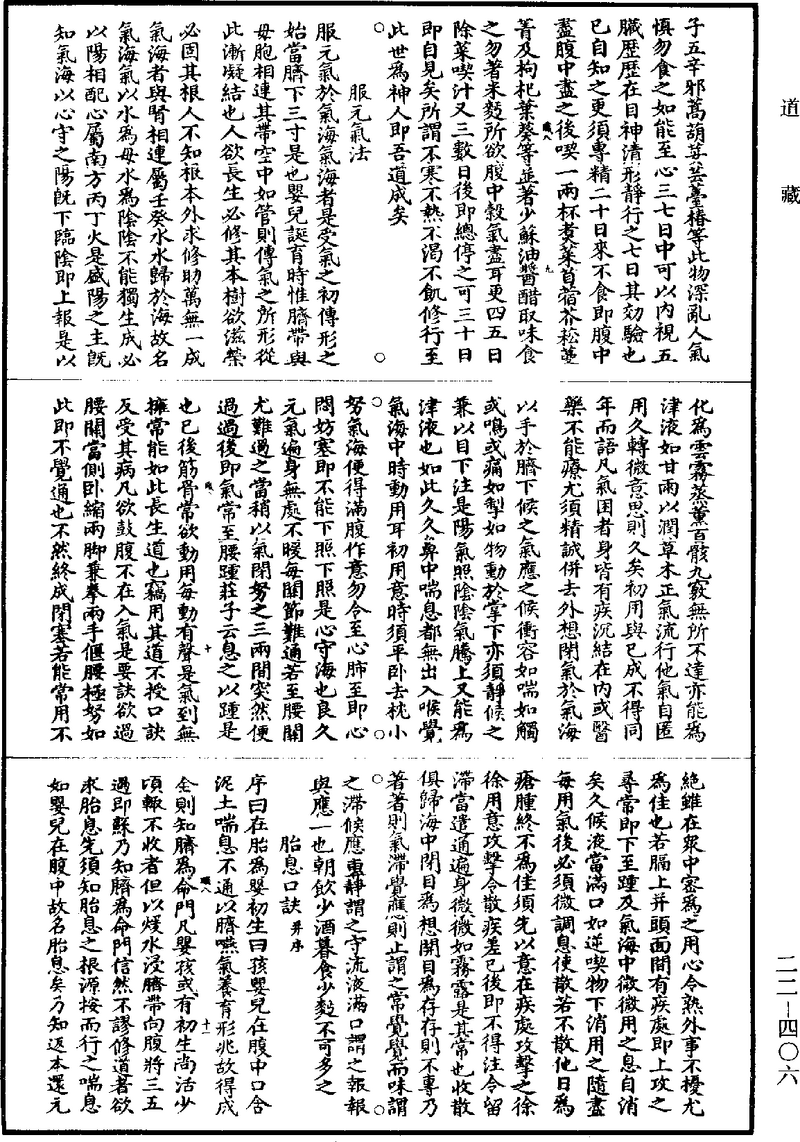 道藏
二二—四〇六
子五辛邪蒿葫荽芸薹椿等此物深亂人氣
慎勿食之如能至心三七日中可以內視五
臟歷歷在目神清形靜行之七日其効驗也
已自知之更須專精二十日來不食即腹中
盡腹中盡之後喫一兩杯煑菜苜蓿芥菘蔓
菁及枸杞葉葵等並著少蘇油醬醋取味食
之勿著米麪所欲腹中穀氣盡耳更四五日
除菜喫汁又三數日後即總停之可三十日
即自見矣所謂不寒不熱不渴不飢修行至
此世為神人即吾道成矣
服元氣法
服元氣於氣海氣海者是受氣之初傳形之
始當臍下三寸是也嬰兒誕育時惟臍帶與
母胞相連其帶空中如管則傳氣之所形從
此漸凝結也人欲長生必修其本樹欲滋榮
必固其根人不知根本外求修助萬無一成
氣海者與腎相連屬壬癸水水歸於海故名
氣海氣以水為母水為陰陰不能獨生成必
以陽相配心屬南方丙丁火是盛陽之主既
知氣海以心守之陽既下臨陰即上報是以
化為雲霧蒸薰百骸九竅無所不達亦能為
津液如甘雨以潤草木正氣流行他氣自匿
用久轉微意思則久矣初用與已成不得同
年而語凡氣困者身皆有疾沉結在內或醫
藥不能療尤須精誠併去外想閉氣於氣海
以手於臍下候之氣應之候衝容如喘如觸
或鳴或痛如掣如物動於掌下亦須靜候之
兼以目下注是陽氣照陰陰氣騰上又能為
津液也如此久久鼻中喘息都無出入喉覺
氣海中時動用耳初用意時須平卧去枕小
努氣海便得滿腹作意勿令至心肺至即心
悶妨塞即不能下照下照是心守海也良久
元氣遍身無處不暖每關節難通若至腰關
尤難過之當稍以氣閉努之三兩間突然便
過過後即氣常至腰踵莊子云息之以踵是
也已後筋骨常欲動用每動有聲是氣到無
擁常能如此長生道也竊用其道不授口訣
反受其病凡欲鼓腹不在入氣是要訣欲過
腰關當側卧縮兩脚兼拳兩手偃腰極努如
此即不覺通也不然終成閉塞若能常用不
絕雖在衆中密為之用心令熟外事不擾尤
為佳也若膈上并頭面間有疾處即上攻之
尋常即下至踵及氣海中微微用之息自消
矣久候液當滿口如逆喫物下消用之隨盡
每用氣後必須微調息使散若不散他日為
瘡腫終不為佳須先以意在疾處攻擊之徐
徐用意攻擊令散疾差已後即不得注令留
滯當遣通遍身微微如霧露是其常也收散
俱歸海中閉目為想開目為存存則不專乃
著著則氣滯覺應則止謂之常覺覺而味謂
之滯候應重靜謂之守流液滿口謂之報報
與應一也朝飲少酒暮食少麪不可多之
胎息口訣 并序
序曰在胎為嬰初生曰孩嬰兒在腹中口含
泥土喘息不通以臍嚥氣養育形兆故得成
全則知臍為命門凡嬰孩或有初生尚活少
頃輒不收者但以煖水浸臍帶向腹將三五
過即蘇乃知臍為命門信然不謬修道者欲
求胎息先須知胎息之根源按而行之喘息
如嬰兒在腹中故名胎息矣乃知返本還元